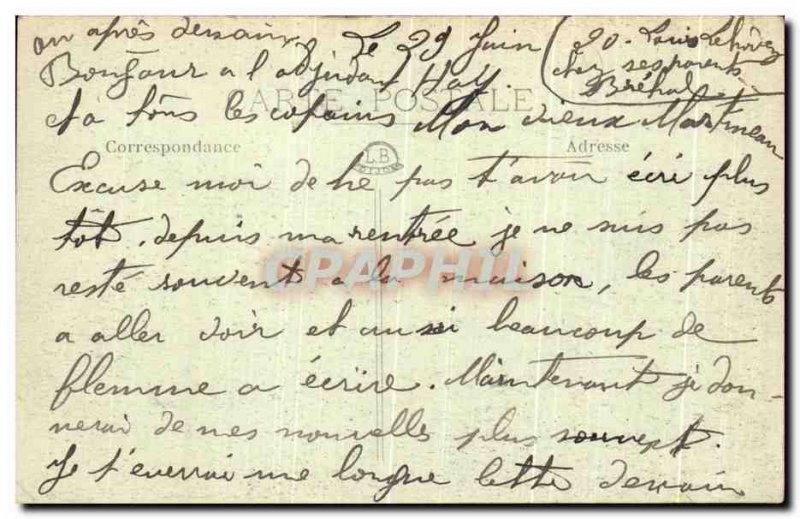 ou après demain
Le 29 Juin
20. Louis Lehô
chez ses parents
Bréhal
Bonjour a l'adjudant Hay.
CARTE POSTALE
et à tous les copains Mon vieux Martineau
Correspondance
LB
Adresse
Excuse moi de ne pas t'avoir écri plus
tôt. depuis ma rentrée je ne suis pas
CPAPHIL
resté souvent a la maison, les parents
a aller voir et aussi beaucoup de
flemme a écrire. Maintenant je don-
nerai de mes nouvelles plus souvent.
Je t'everrai une longue lettre demain